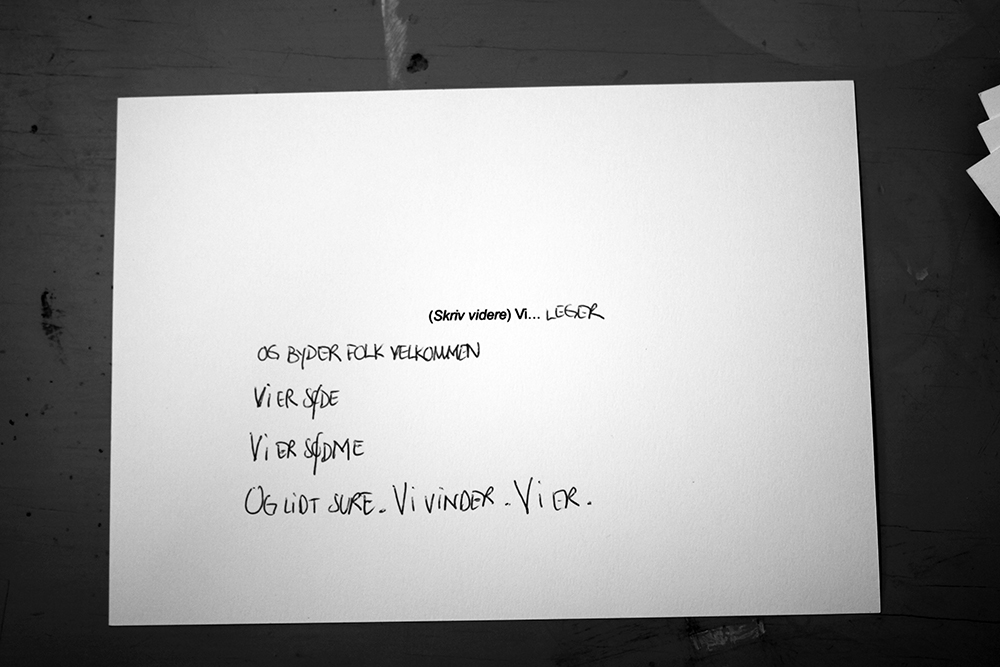 (Skriv videre) Vi... LEGER
OG BYDER FOLK VELKOMMEN
Vi ER SØDE
Vi ER SØDME
OG LiDT SURE. Vi ViNDER. Vi ER.